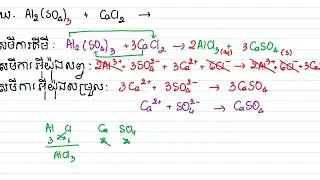 ឃ. Al₂(SO₄)₃ + CaCl₂ →
សមីការគីមី: Al₂(SO₄)₃ + 3CaCl₂ → 2AlCl₃(aq) + 3CaSO₄(s)
សមីការអ៊ីយ៉ុងសព្វ: 2Al³⁺ + 3SO₄²⁻ + 3Ca²⁺ + 6Cl⁻ → 2Al³⁺ + 6Cl⁻ + 3Ca
សមីការអ៊ីយ៉ុងសម្រួល: 3Ca²⁺ + 3SO₄²⁻ → 3CaSO₄
Ca²⁺ + SO₄²⁻ → CaSO₄
Al Cl Ca SO₄
AlCl₃